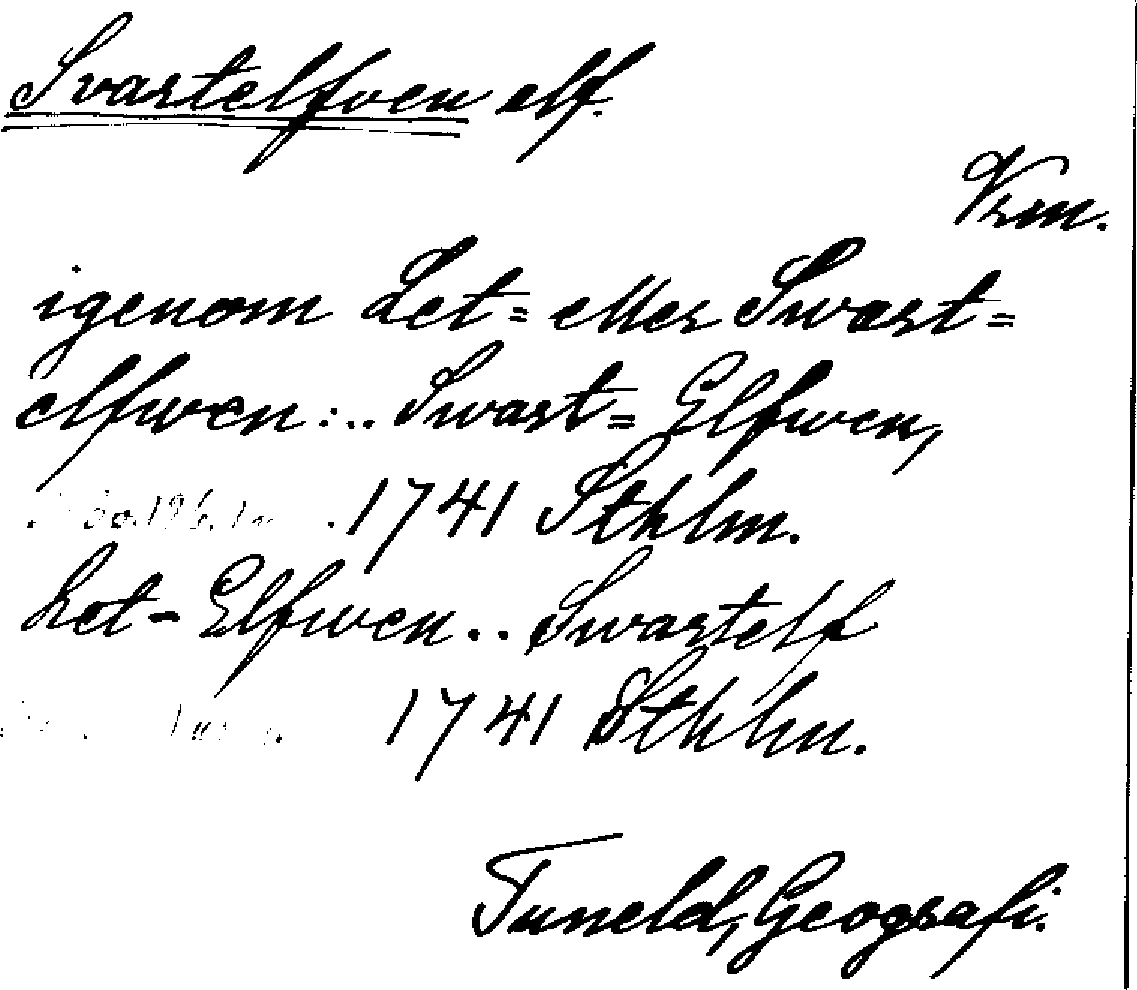 Svartelfven elf.
Vrm.
igenom Let= eller Swart=
elfwen:.. Swart= Elfwen,
1741 Sthlm.
Let- Elfwen.. Swartelf
1741 Sthlm.
Tuneld, Geografi.